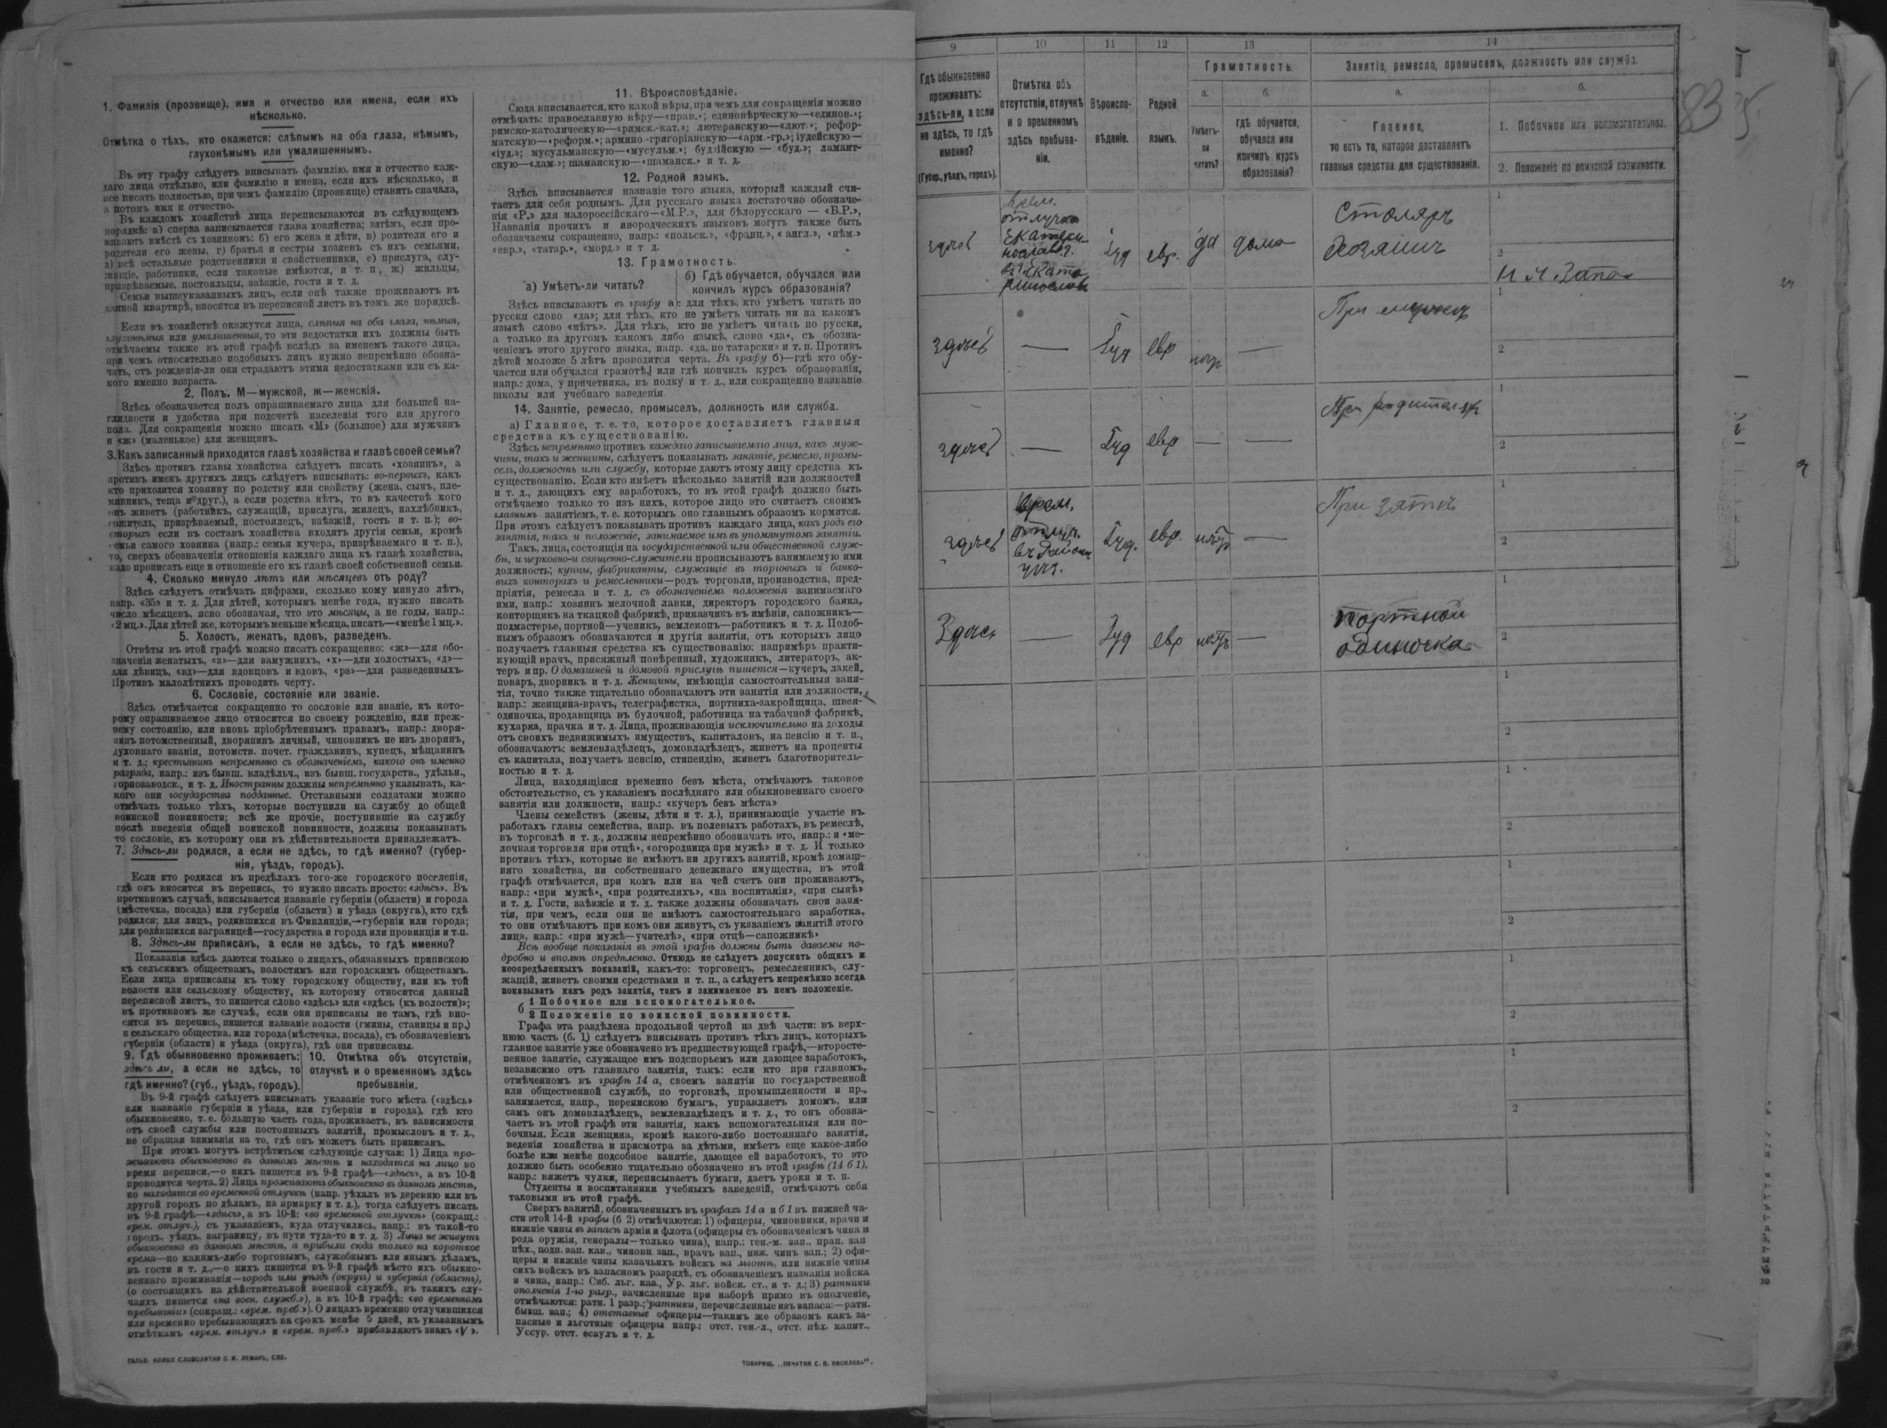 1. Фамилія (прозвище), имя и отчество или имена, если ихъ
нѣсколько.
Отмѣтка о тѣхъ, кто окажется: слѣпымъ на оба глаза, нѣмымъ,
глухонѣмымъ или умалишеннымъ.
Въ эту графу слѣдуетъ вписывать фамилію, имя и отчество каж-
даго лица отдѣльно, или фамилію и имена, если ихъ нѣсколько, и
все писать полностью, при чемъ фамилію (прозвище) ставить сначала,
а потомъ имя и отчество.
Въ каждомъ хозяйствѣ лица переписываются въ слѣдующемъ
порядкѣ: а) сперва записывается глава хозяйства; затѣмъ, если про-
живаютъ вмѣстѣ съ хозяиномъ: б) его жена и дѣти, в) родители его и
родители его жены, г) братья и сестры хозяевъ съ ихъ семьями,
д) всѣ остальные родственники и свойственники, е) прислуга, слу-
жащіе, работники, если таковые имѣются, и т. п., ж) жильцы,
призрѣваемые, постояльцы, заѣзжіе, гости и т. д.
Семьи вышеуказанныхъ лицъ, если онѣ также проживаютъ въ
данной квартирѣ, вносятся въ переписной листъ въ томъ же порядкѣ.
Если въ хозяйствѣ окажутся лица, слѣпыя на оба глаза, нѣмыя,
глухонѣмыя или умалишенныя, то эти недостатки ихъ должны быть
отмѣчаемы также въ этой графѣ вслѣдъ за именемъ такого лица,
при чемъ относительно подобныхъ лицъ нужно непремѣнно обозна-
чать, отъ рожденія-ли они страдаютъ этими недостатками или съ ка-
кого именно возраста.
2. Полъ. М—мужской, ж—женскій.
Здѣсь обозначается полъ опрашиваемаго лица для большей на-
глядности и удобства при подсчетѣ населенія того или другого
пола. Для сокращенія можно писать «М» (большое) для мужчинъ
и «ж» (маленькое) для женщинъ.
3. Какъ записанный приходится главѣ хозяйства и главѣ своей семьи?
Здѣсь противъ главы хозяйства слѣдуетъ писать «хозяинъ», а
противъ именъ другихъ лицъ слѣдуетъ вписывать: во-первыхъ, какъ
кто приходится хозяину по родству или свойству (жена, сынъ, пле-
мянникъ, теща и друг.), а если родства нѣтъ, то въ качествѣ кого
онъ живетъ (работникъ, служащій, прислуга, жилецъ, нахлѣбникъ,
сожитель, призрѣваемый, постоялецъ, заѣзжій, гость и т. п.); во-
вторыхъ если въ составъ хозяйства входятъ другія семьи, кромѣ
семьи самого хозяина (напр.: семья кучера, призрѣваемаго и т. п.),
то, сверхъ обозначенія отношенія каждаго лица къ главѣ хозяйства,
надо прописать еще и отношеніе его къ главѣ своей собственной семьи.
4. Сколько минуло лѣтъ или мѣсяцевъ отъ роду?
Здѣсь слѣдуетъ отмѣчать цифрами, сколько кому минуло лѣтъ,
напр. «35» и т. д. Для дѣтей, которымъ менѣе года, нужно писать
число мѣсяцевъ, ясно обозначая, что это мѣсяцы, а не годы, напр.:
«2 мц.». Для дѣтей же, которымъ меньше мѣсяца, писать—«менѣе 1 мц.».
5. Холостъ, женатъ, вдовъ, разведенъ.
Отвѣты въ этой графѣ можно писать сокращенно: «ж»—для обо-
значенія женатыхъ, «з»—для замужнихъ, «х»—для холостыхъ, «д»—
для дѣвицъ, «вд»—для вдовцовъ и вдовъ, «рв»—для разведенныхъ.
Противъ малолѣтнихъ проводить черту.
6. Сословіе, состояніе или званіе.
Здѣсь отмѣчается сокращенно то сословіе или званіе, къ кото-
рому опрашиваемое лицо относится по своему рожденію, или преж-
нему состоянію, или вновь пріобрѣтеннымъ правамъ, напр.: дворя-
нинъ потомственный, дворянинъ личный, чиновникъ не изъ дворянъ,
духовнаго званія, потомств. почет. гражданинъ, купецъ, мѣщанинъ
и т. д.; крестьянинъ непремѣнно съ обозначеніемъ, какого онъ именно
разряда, напр.: изъ бывш. владѣльч., изъ бывш. государств., удѣльн.,
горнозаводск., и т. д. Иностранцы должны непремѣнно указывать, ка-
кого они государства подданные. Отставными солдатами можно
отмѣчать только тѣхъ, которые поступили на службу до общей
воинской повинности; всѣ же прочіе, поступившіе на службу
послѣ введенія общей воинской повинности, должны показывать
то сословіе, къ которому они въ дѣйствительности принадлежатъ.
7. Здѣсь-ли родился, а если не здѣсь, то гдѣ именно? (губер-
нія, уѣздъ, городъ).
Если кто родился въ предѣлахъ того-же городского поселенія,
гдѣ онъ вносится въ перепись, то нужно писать просто: «здѣсь». Въ
противномъ случаѣ, вписывается названіе губерніи (области) и города
(мѣстечка, посада) или губерніи (области) и уѣзда (округа), кто гдѣ
родился; для лицъ, родившихся въ Финляндіи,—губерніи или города;
для родившихся заграницей—государства и города или провинціи и т.п.
8. Здѣсь-ли приписанъ, а если не здѣсь, то гдѣ именно?
Показанія здѣсь даются только о лицахъ, обязанныхъ припискою
къ сельскимъ обществамъ, волостямъ или городскимъ обществамъ.
Если лица приписаны къ тому городскому обществу, или къ той
волости или сельскому обществу, къ которому относится данный
переписной листъ, то пишется слово «здѣсь» или «здѣсь (къ волости)»;
въ противномъ же случаѣ, если они приписаны не тамъ, гдѣ вно-
сятся въ перепись, пишется названіе волости (гмины, станицы и пр.)
и сельскаго общества, или города (мѣстечка, посада), съ обозначеніемъ
губерніи (области) и уѣзда (округа), гдѣ они приписаны.
9. Гдѣ обыкновенно проживаетъ:
здѣсь ли, а если не здѣсь, то
гдѣ именно? (губ., уѣздъ, городъ).
10. Отмѣтка объ отсутствіи,
отлучкѣ и о временномъ здѣсь
пребываніи.
Въ 9-й графѣ слѣдуетъ вписывать указаніе того мѣста («здѣсь»
или названіе губерніи и уѣзда, или губерніи и города), гдѣ кто
обыкновенно, т. е. большую часть года, проживаетъ, въ зависимости
отъ своей службы или постоянныхъ занятій, промысловъ и т. д.,
не обращая вниманія на то, гдѣ онъ можетъ быть приписанъ.
При этомъ могутъ встрѣтиться слѣдующіе случаи: 1) Лица про-
живаютъ обыкновенно въ данномъ мѣстѣ и находятся на лицо во
время переписи,—о нихъ пишется въ 9-й графѣ—«здѣсь», а въ 10-й
проводится черта. 2) Лица проживаютъ обыкновенно въ данномъ мѣстѣ,
но находятся во временной отлучкѣ (напр. уѣхалъ въ деревню или въ
другой городъ по дѣламъ, на ярмарку и т. д.), тогда слѣдуетъ писать
въ 9-й графѣ—«здѣсь», а въ 10-й: «во временной отлучкѣ» (сокращ.:
«врем. отлуч.»), съ указаніемъ, куда отлучились, напр.: въ такой-то
городъ, уѣздъ, заграницу, въ пути туда-то и т. д. 3) Лица не живутъ
обыкновенно въ данномъ мѣстѣ, а прибыли сюда только на короткое
время—по какимъ-либо торговымъ, служебнымъ или инымъ дѣламъ,
въ гости и т. д.,—о нихъ пишется въ 9-й графѣ мѣсто ихъ обыкно-
веннаго проживанія—городъ или уѣздъ (округъ) и губернія (область),
(о состоящихъ на дѣйствительной военной службѣ, въ такихъ слу-
чаяхъ пишется «на воен. службѣ»), а въ 10-й графѣ: «во временномъ
пребываніи» (сокращ.: «врем. преб.»). О лицахъ временно отлучившихся
или временно пребывающихъ на срокъ менѣе 5 дней, къ указаннымъ
отмѣткамъ «врем. отлуч.» и «врем. преб.» прибавляютъ знакъ «V».
11. Вѣроисповѣданіе.
Сюда вписывается, кто какой вѣры, при чемъ для сокращенія можно
отмѣчать: православную вѣру—«прав.»; единовѣрческую—«единов.»;
римско-католическую—«римск.-кат.»; лютеранскую—«лют.»; рефор-
матскую—«реформ.»; армяно-григоріанскую—«арм.-гр.»; іудейскую—
«іуд.»; мусульманскую—«мусульм.»; буддійскую — «буд.»; ламаит-
скую—«лам.»; шаманскую—«шаманск.» и т. д.
12. Родной языкъ.
Здѣсь вписывается названіе того языка, который каждый счи-
таетъ для себя роднымъ. Для русскаго языка достаточно обозначе-
нія «Р.» для малороссійскаго—«М.Р.», для бѣлорусскаго — «Б.Р.»,
Названія прочихъ и инородческихъ языковъ могутъ также быть
обозначаемы сокращенно, напр.: «польск.», «франц.», «англ.», «нѣм.»
«евр.», «татар.», «морд.» и т д.
13. Грамотность.
а) Умѣетъ-ли читать?
б) Гдѣ обучается, обучался или
кончилъ курсъ образованія?
Здѣсь вписываютъ въ графу а): для тѣхъ, кто умѣетъ читать по
русски слово «да»; для тѣхъ, кто не умѣетъ читать ни на какомъ
языкѣ слово «нѣтъ». Для тѣхъ, кто не умѣетъ читать по русски,
а только на другомъ какомъ либо языкѣ, слово «да», съ обозна-
ченіемъ этого другого языка, напр. «да, по татарски» и т. п. Противъ
дѣтей моложе 5 лѣтъ проводится черта. Въ графу б)—гдѣ кто обу-
чается или обучался грамотѣ, или гдѣ кончилъ курсъ образованія,
напр.: дома, у причетника, въ полку и т. д., или сокращенно названіе
школы или учебнаго заведенія
14. Занятіе, ремесло, промыселъ, должность или служба.
а) Главное, т. е. то, которое доставляетъ главныя
средства къ существованію.
Здѣсь непремѣнно противъ каждаго записываемаго лица, какъ муж-
чины, такъ и женщины, слѣдуетъ показывать занятіе, ремесло, промы-
селъ, должность или службу, которые даютъ этому лицу средства къ
существованію. Если кто имѣетъ нѣсколько занятій или должностей
и т. д., дающихъ ему заработокъ, то въ этой графѣ должно быть
отмѣчаемо только то изъ нихъ, которое лицо это считаетъ своимъ
главнымъ занятіемъ, т. е. которымъ оно главнымъ образомъ кормится.
При этомъ слѣдуетъ показывать противъ каждаго лица, какъ родъ его
занятія, такъ и положеніе, занимаемое имъ въ упомянутомъ занятіи.
Такъ, лица, состоящія на государственной или общественной служ-
бѣ, и церковно-и священно-служители прописываютъ занимаемую ими
должность; купцы, фабриканты, служащіе въ торговыхъ и банко-
выхъ конторахъ и ремесленники—родъ торговли, производства, пред-
пріятія, ремесла и т. д. съ обозначеніемъ положенія занимаемаго
ими, напр.: хозяинъ мелочной лавки, директоръ городского банка,
конторщикъ на ткацкой фабрикѣ, приказчикъ въ имѣніи, сапожникъ—
подмастерье, портной—ученикъ, землекопъ—работникъ и т. д. Подоб-
нымъ образомъ обозначаются и другія занятія, отъ которыхъ лицо
получаетъ главныя средства къ существованію: напримѣръ практи-
кующій врачъ, присяжный повѣренный, художникъ, литераторъ, ак-
теръ и пр. О домашней и домовой прислугѣ пишется—кучеръ, лакей,
поваръ, дворникъ и т. д. Женщины, имѣющія самостоятельныя заня-
тія, точно также тщательно обозначаютъ эти занятія или должности,
напр.: женщина-врачъ, телеграфистка, портниха-закройщица, швея-
одиночка, продавщица въ булочной, работница на табачной фабрикѣ,
кухарка, прачка и т. д. Лица, проживающія исключительно на доходы
отъ своихъ недвижимыхъ имуществъ, капиталовъ, на пенсію и т. п.,
обозначаютъ: землевладѣлецъ, домовладѣлецъ, живетъ на проценты
съ капитала, получаетъ пенсію, стипендію, живетъ благотворитель-
ностью и т. д.
Лица, находящіяся временно безъ мѣста, отмѣчаютъ таковое
обстоятельство, съ указаніемъ послѣдняго или обыкновеннаго своего
занятія или должности, напр.: «кучеръ безъ мѣста»
Члены семействъ (жены, дѣти и т. д.), принимающіе участіе въ
работахъ главы семейства, напр. въ полевыхъ работахъ, въ ремеслѣ,
въ торговлѣ и т. д., должны непремѣнно обозначать это, напр.: и «ме-
лочная торговля при отцѣ», «огородница при мужѣ» и т. д. И только
противъ тѣхъ, которые не имѣютъ ни другихъ занятій, кромѣ домаш-
няго хозяйства, ни собственнаго денежнаго имущества, въ этой
графѣ отмѣчается, при комъ или на чей счетъ они проживаютъ,
напр.: «при мужѣ», «при родителяхъ», «на воспитаніи», «при сынѣ»
и т. д. Гости, заѣзжіе и т. д. также должны обозначать свои заня-
тія, при чемъ, если они не имѣютъ самостоятельнаго заработка,
то они отмѣчаютъ при комъ они живутъ, съ указаніемъ занятій этого
лица, напр.: «при мужѣ—учителѣ», «при отцѣ—сапожникѣ»
Всѣ вообще показанія въ этой графѣ должны быть даваемы по-
дробно и вполнѣ опредѣленно. Отнюдь не слѣдуетъ допускать общихъ и
неопредѣленныхъ показаній, какъ-то: торговецъ, ремесленникъ, слу-
жащій, живетъ своими средствами и т. п., а слѣдуетъ непремѣнно всегда
показывать какъ родъ занятія, такъ и занимаемое въ немъ положеніе.
б 1 Побочное или вспомогательное.
2 Положеніе по воинской повинности.
Графа эта раздѣлена продольной чертой на двѣ части: въ верх-
нюю часть (б. 1) слѣдуетъ вписывать противъ тѣхъ лицъ, которыхъ
главное занятіе уже обозначено въ предшествующей графѣ,—второсте-
пенное занятіе, служащее имъ подспорьемъ или дающее заработокъ,
независимо отъ главнаго занятія, такъ: если кто при главномъ,
отмѣченномъ въ графѣ 14 а, своемъ занятіи по государственной
или общественной службѣ, по торговлѣ, промышленности и пр.,
занимается, напр., перепискою бумагъ, управляетъ домомъ, или
самъ онъ домовладѣлецъ, землевладѣлецъ и т. д., то онъ обозна-
чаетъ въ этой графѣ эти занятія, какъ вспомогательныя или по-
бочныя. Если женщина, кромѣ какого-либо постояннаго занятія,
веденія хозяйства и присмотра за дѣтьми, имѣетъ еще какое-либо
болѣе или менѣе подсобное занятіе, дающее ей заработокъ, то это
должно быть особенно тщательно обозначено въ этой графѣ (14 б 1),
напр.: вяжетъ чулки, переписываетъ бумаги, даетъ уроки и т. п.
Студенты и воспитанники учебныхъ заведеній, отмѣчаютъ себя
таковыми въ этой графѣ.
Сверхъ занятій, обозначенныхъ въ графахъ 14 а и б 1 въ нижней ча-
сти этой 14-й графы (б 2) отмѣчаются: 1) офицеры, чиновники, врачи и
нижніе чины въ запасѣ арміи и флота (офицеры съ обозначеніемъ чина и
рода оружія, генералы—только чина), напр.: ген.-м. зап., прап. зап
пѣх., подп. зап. кав., чиновн. зап., врачъ зап., ниж. чинъ зап.; 2) офи-
церы и нижніе чины казачьихъ войскъ на льготѣ, или нижніе чины
сихъ войскъ въ запасномъ разрядѣ, съ обозначеніемъ названія войска
и чина, напр.: Сиб. льг. каз., Ур. льг. войск. ст., и т. д.; 3) ратники
ополченія 1-го разр., зачисленные при наборѣ прямо въ ополченіе,
отмѣчаются: ратн. 1 разр.; ратники, перечисленные изъ запаса:—ратн.
бывш. зап.; 4) отставные офицеры—такимъ же образомъ какъ за-
пасные и льготные офицеры напр.: отст. ген.-л., отст. пѣх. капит.,
Уссур. отст. есаулъ и т. д.
ГАЛЬВ. КЛИШЕ СЛОВОЛИТНИ О. И. ЛЕМАНЪ, СПБ.
ТОВАРИЩ. „ПЕЧАТНЯ С. П. ЯКОВЛЕВА“.
9 10 11 12 13 14
Гдѣ обыкновенно
проживаетъ:
здѣсь-ли, а если
не здѣсь, то гдѣ
именно?
(Губер., уѣздъ, городъ).
Отмѣтка объ
отсутствіи, отлучкѣ
и о временномъ
здѣсь пребыва-
ніи.
Вѣроиспо-
вѣданіе.
Родной
языкъ.
Грамотность.
а.
Умѣетъ-
ли
читать?
б.
Гдѣ обучается,
обучался или
кончилъ курсъ
образованія?
Занятіе, ремесло, промыселъ, должность или служба.
а.
Главное,
то есть то, которое доставляетъ
главныя средства для существованія.
б.
1. Побочное или вспомогательное.
2. Положеніе по воинской повинности.
83
здѣсь
врем.
отлучка
Іуд евр. да дома
Столяръ
Хозяинъ
1
2
здѣсь — Іуд евр нѣтъ —
При мужѣ
1
2
здѣсь — Іуд евр — —
При родителяхъ
1
2
здѣсь
врем.
отлуч.
Іуд. евр. нѣтъ —
При зятѣ
1
2
Здѣсь — Іуд евр нѣтъ —
портной
одиночка
1
2
1
2
1
2
1
2
1
2
1
2